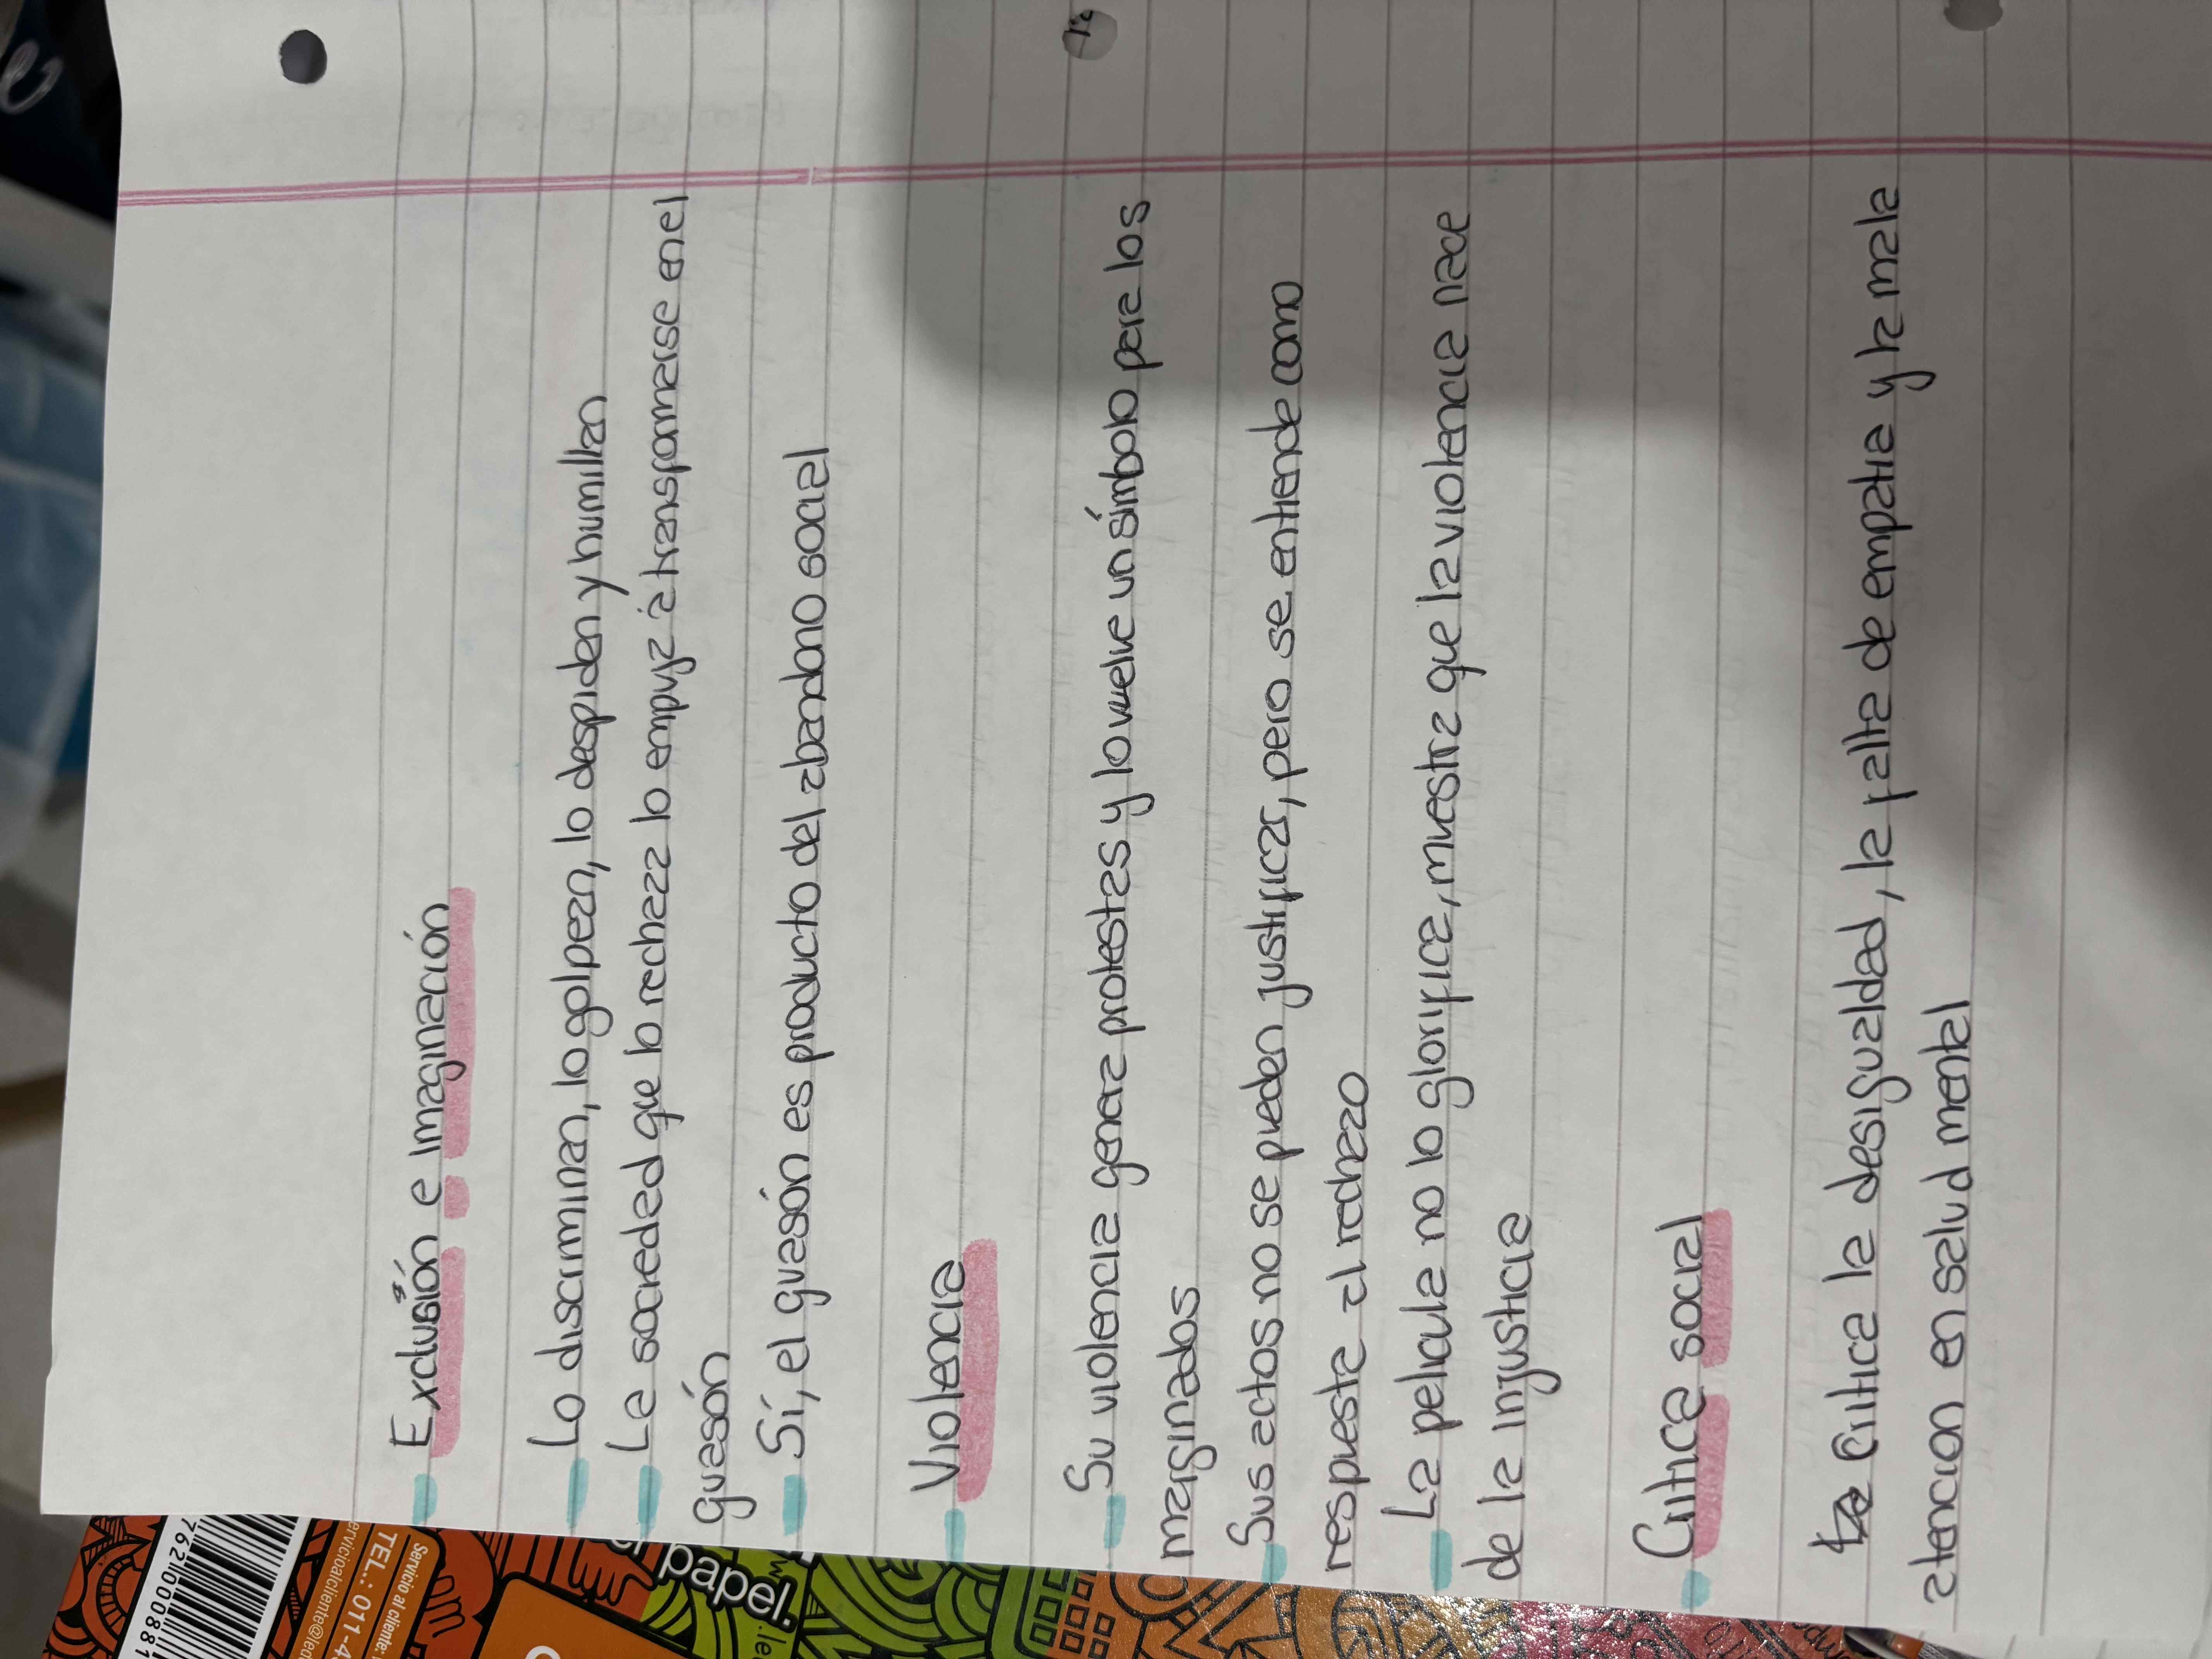 Exclusión e imaginación
Lo discriminan, lo golpean, lo despiden y humillan
La sociedad que lo rechaza lo empuja a transformarse en el
guasón
Sí, el guasón es producto del abandono social
Violencia
Su violencia genera protestas y lo vuelve un símbolo para los
marginados
Sus actos no se pueden justificar, pero se entiende como
respuesta al rechazo
La pelicula no lo glorifica, muestra que la violencia nace
de la injusticia
Critica social
Critica la desigualdad, la falta de empatia y la mala
atencion en salud mental
Servicio al cliente:
TEL.: 011-4
papel.